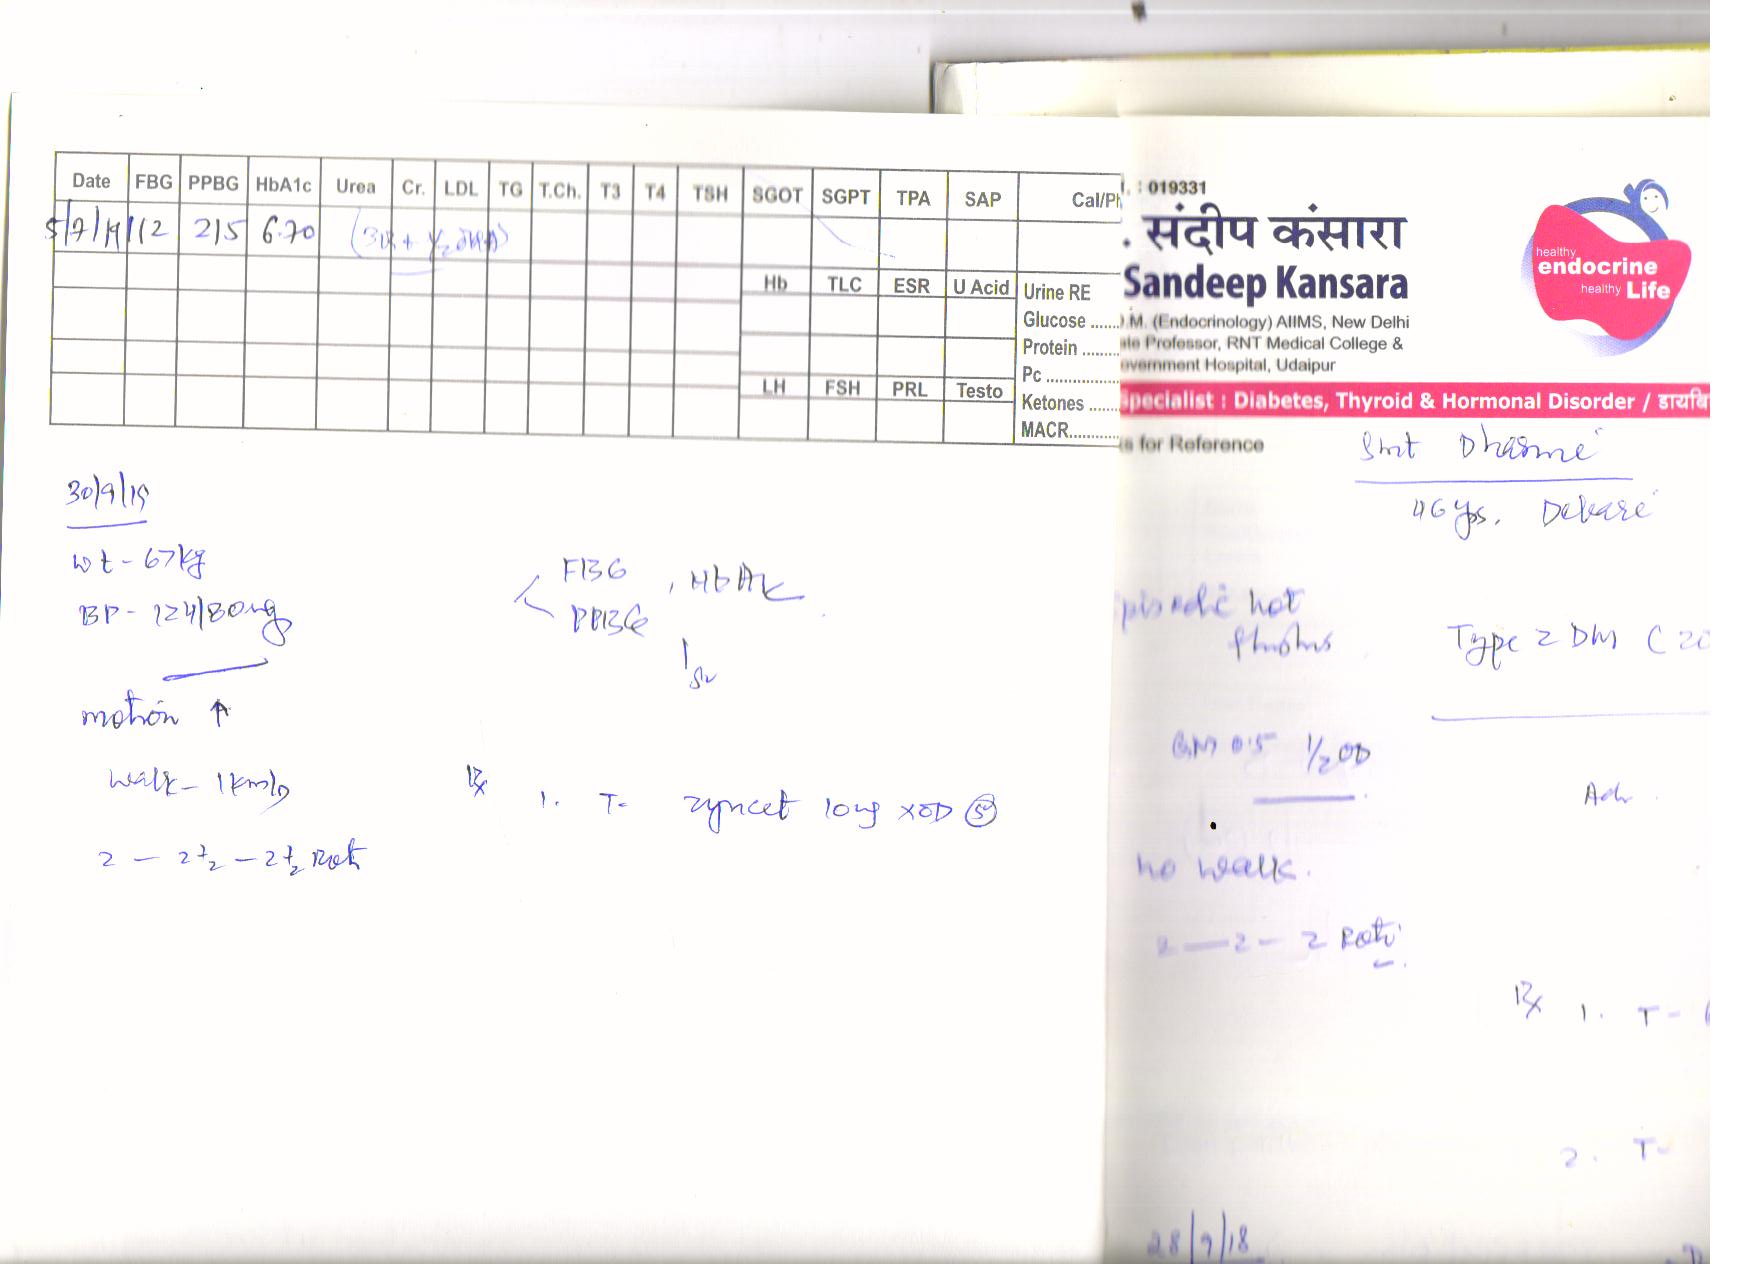 Date FBG PPBG HbA1c Urea Cr. LDL TG T.Ch. T3 T4 TSH SGOT SGPT TPA SAP Cal/Ph
5/7/19 112 215 6.70
Hb TLC ESR U Acid
LH FSH PRL Testo
Urine RE
Glucose ......
Protein .........
Pc ................
Ketones ......
MACR............
30/9/19
wt - 67kg
BP - 124/80mg
motion ↑
walk - 1km/D
2 - 2½ - 2½ Roti
FBG
, HbA1c
PPBG
Rx
1. T- zyncet long XOD
: 019331
. संदीप कंसारा
Sandeep Kansara
M. (Endocrinology) AIIMS, New Delhi
ate Professor, RNT Medical College &
overnment Hospital, Udaipur
healthy
endocrine
healthy Life
Specialist : Diabetes, Thyroid & Hormonal Disorder / डायबि
s for Reference
Smt
46 yrs.
hot
Type 2 DM ( 20
GM 0.5 ½ OD
Adv
no walk.
2 - 2 - 2 Roti
Rx 1. T-
2. T-
28/9/18